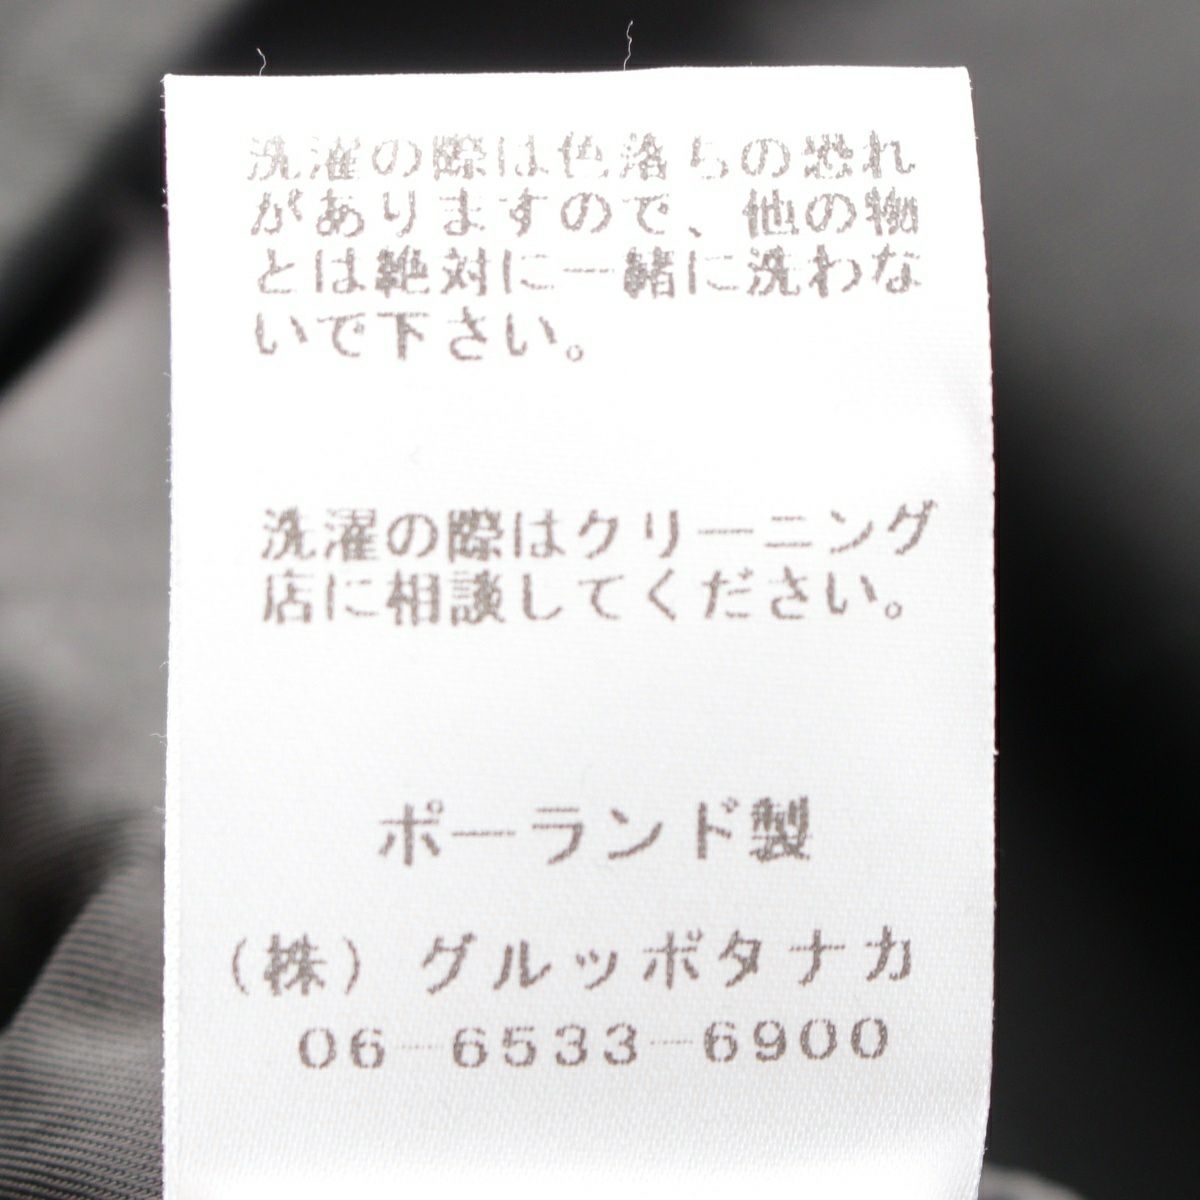 洗濯の際は色落ちの恐れ
がありますので、他の物
とは絶対に一緒に洗わな
いで下さい。
洗濯の際はクリーニング
店に相談してください。
ポーランド製
(株)グルッポタナカ
06-6533-6900